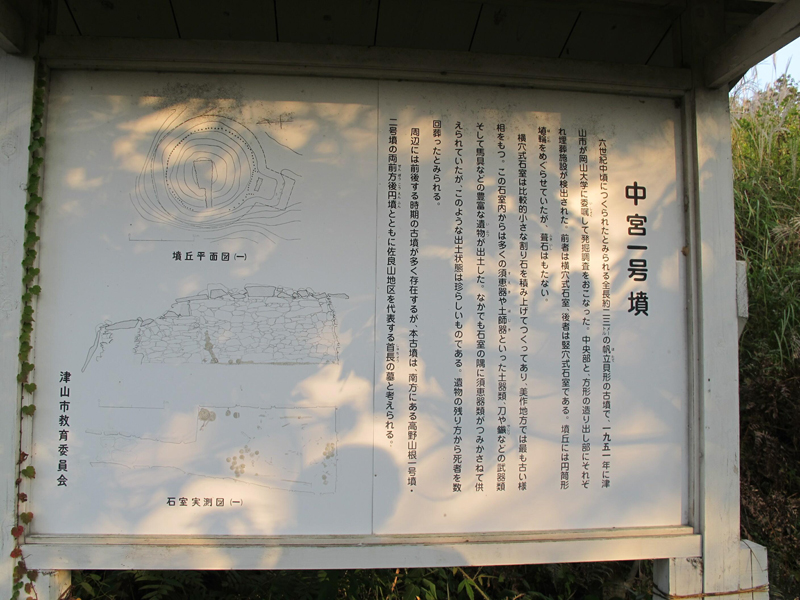 中宮一号墳
六世紀中頃につくられたとみられる全長約二三㍍の帆立貝形の古墳で、一九五一年に津
山市が岡山大学に委嘱して発掘調査をおこなった。中央部と、方形の造り出し部にそれぞ
れ埋葬施設が検出された。前者は横穴式石室、後者は竪穴式石室である。墳丘には円筒形
埴輪をめぐらせていたが、葺石はもたない。
横穴式石室は比較的小さな割り石を積み上げてつくってあり、美作地方では最も古い様
相をもつ。この石室内からは多くの須恵器や土師器といった土器類、刀や鏃などの武器類
そして馬具などの豊富な遺物が出土した。なかでも石室の隅に須恵器類がつみかさねて供
えられていたが、このような出土状態は珍らしいものである。遺物の残り方から死者を数
回葬ったとみられる。
周辺には前後する時期の古墳が多く存在するが、本古墳は、南方にある高野山根一号墳・
二号墳の両前方後円墳とともに佐良山地区を代表する首長の墓と考えられる。
墳丘平面図(一)
石室実測図(一)
津山市教育委員会